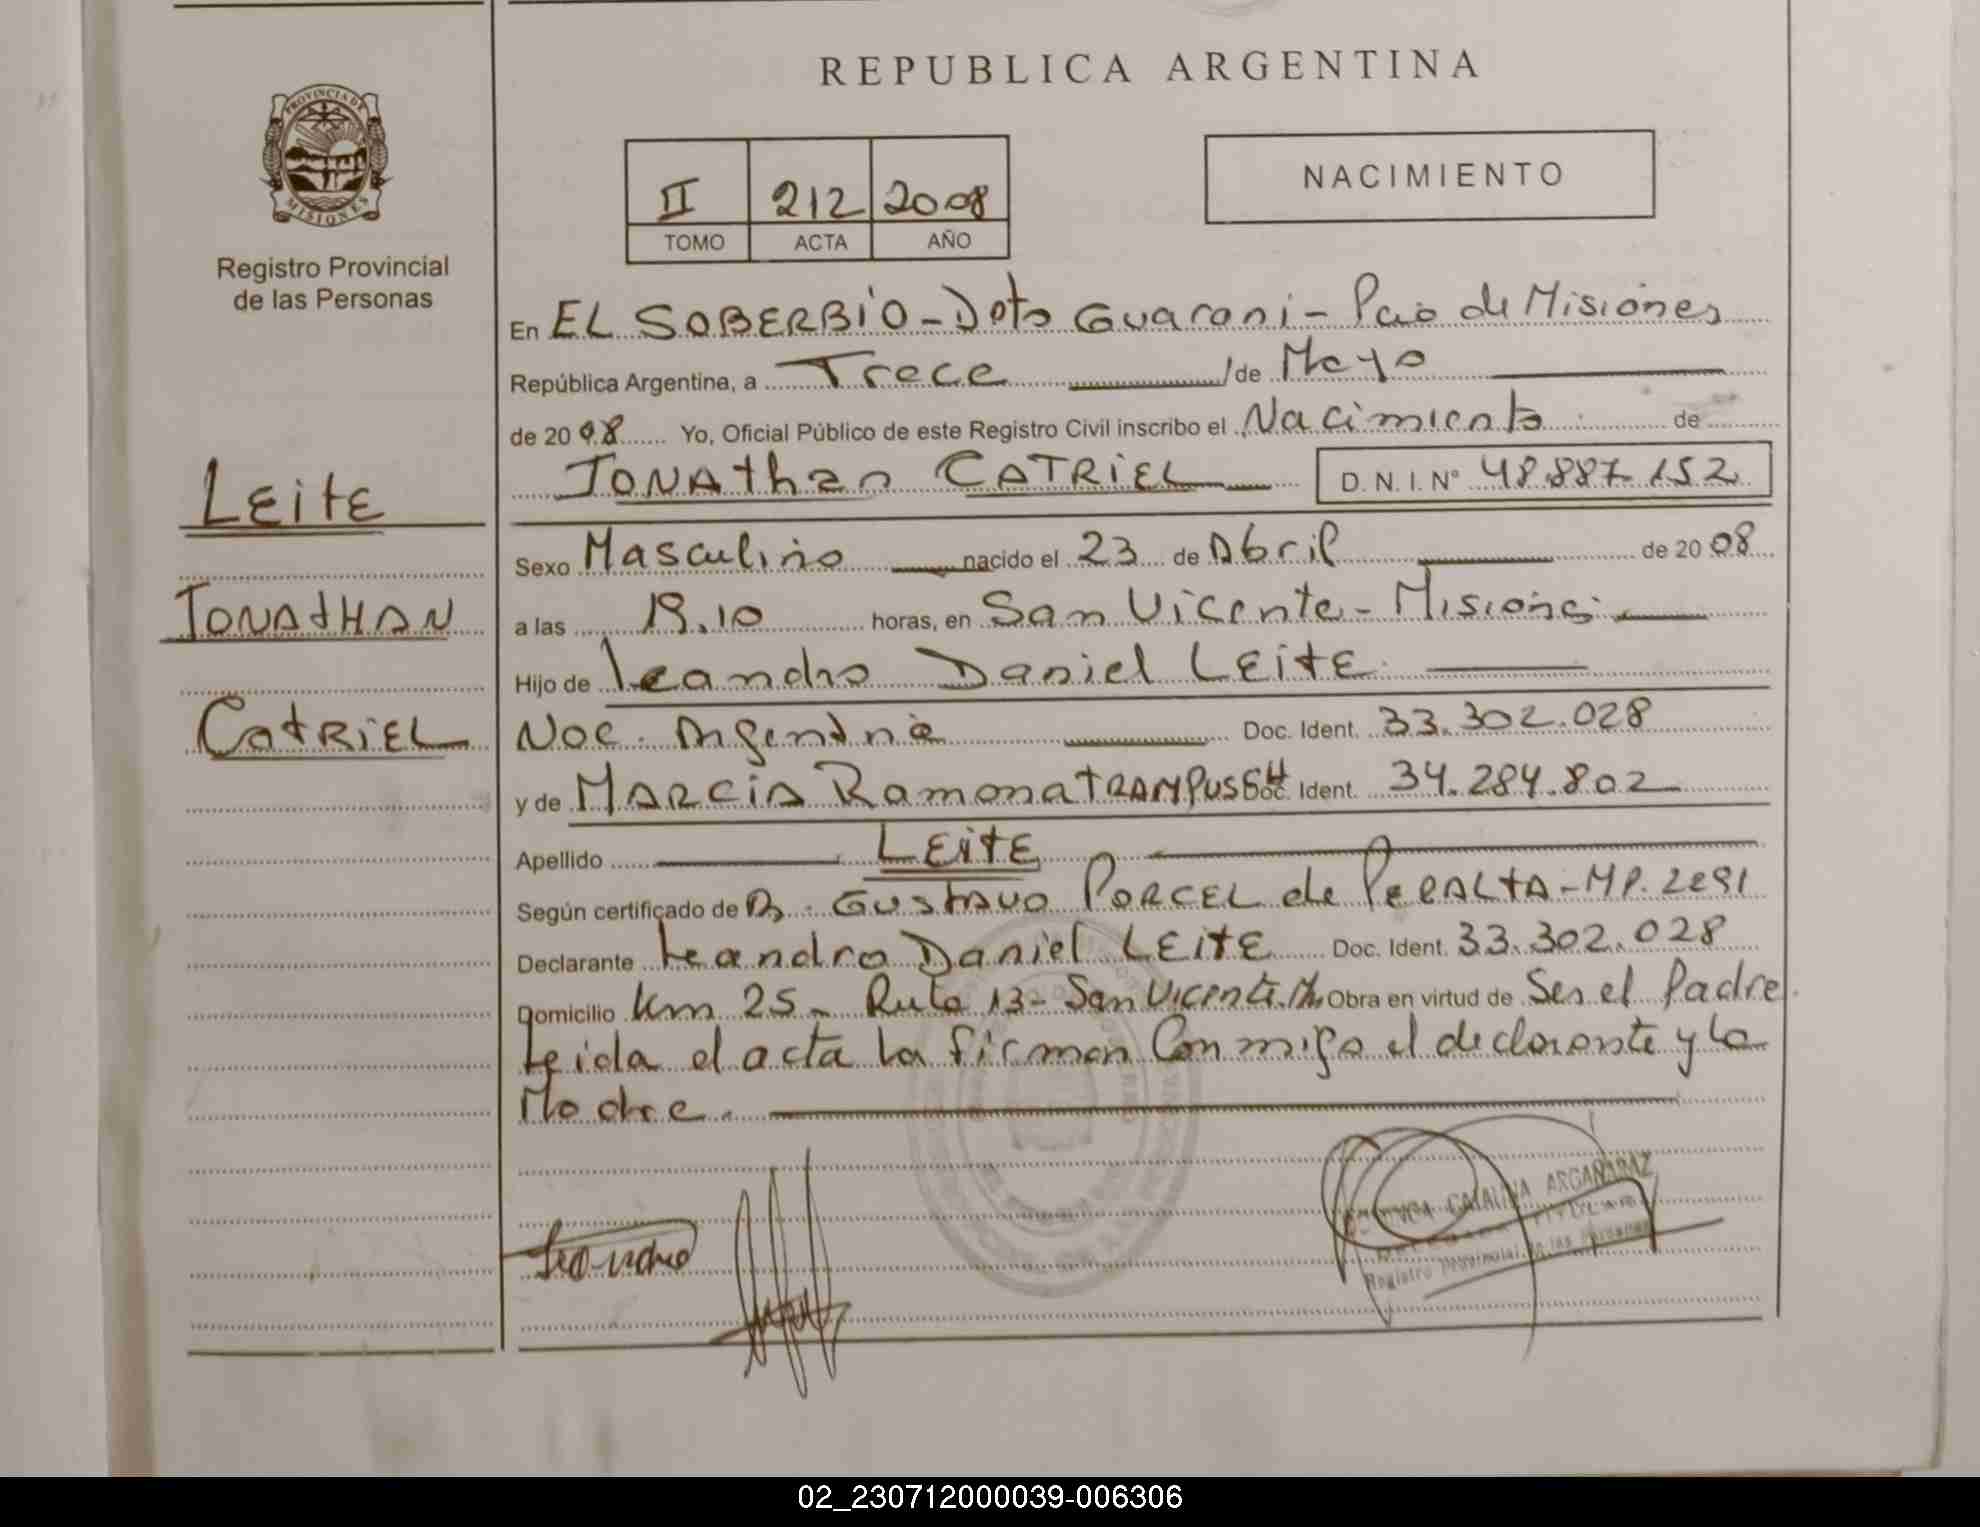 REPUBLICA ARGENTINA
PROVINCIA DE MISIONES
Registro Provincial
de las Personas
II 212 2008
TOMO ACTA AÑO
NACIMIENTO
En EL SOBERBIO - Dpto Guarani - Pcia de Misiones
República Argentina, a Trece de Mayo
de 2008 Yo, Oficial Público de este Registro Civil inscribo el Nacimiento de
JONAthan CATRIEL D.N.I. N° 48.887.152
LEitE
JONAtHAN
CAtRiEL
Sexo Masculino nacido el 23 de Abril de 2008
a las 19.10 horas, en San Vicente - Misiones
Hijo de Leandro Daniel LEitE
Nac. Argentina Doc. Ident. 33.302.028
y de MARCiA Ramona tRAMPUSCH Doc. Ident. 34.284.802
Apellido LEitE
Según certificado de Dr. GUSTAVO PORCEL de PeRALtA - MP. 2291
Declarante Leandro Daniel LEitE Doc. Ident. 33.302.028
Domicilio Km 25 - Ruta 13 - San Vicente. Obra en virtud de Ser el Padre
Leida el acta la firman Conmigo el declarante y la
Madre.
Leandro
CATALINA ARGAÑARAZ
Registro Provincial de las Personas
02_230712000039-006306